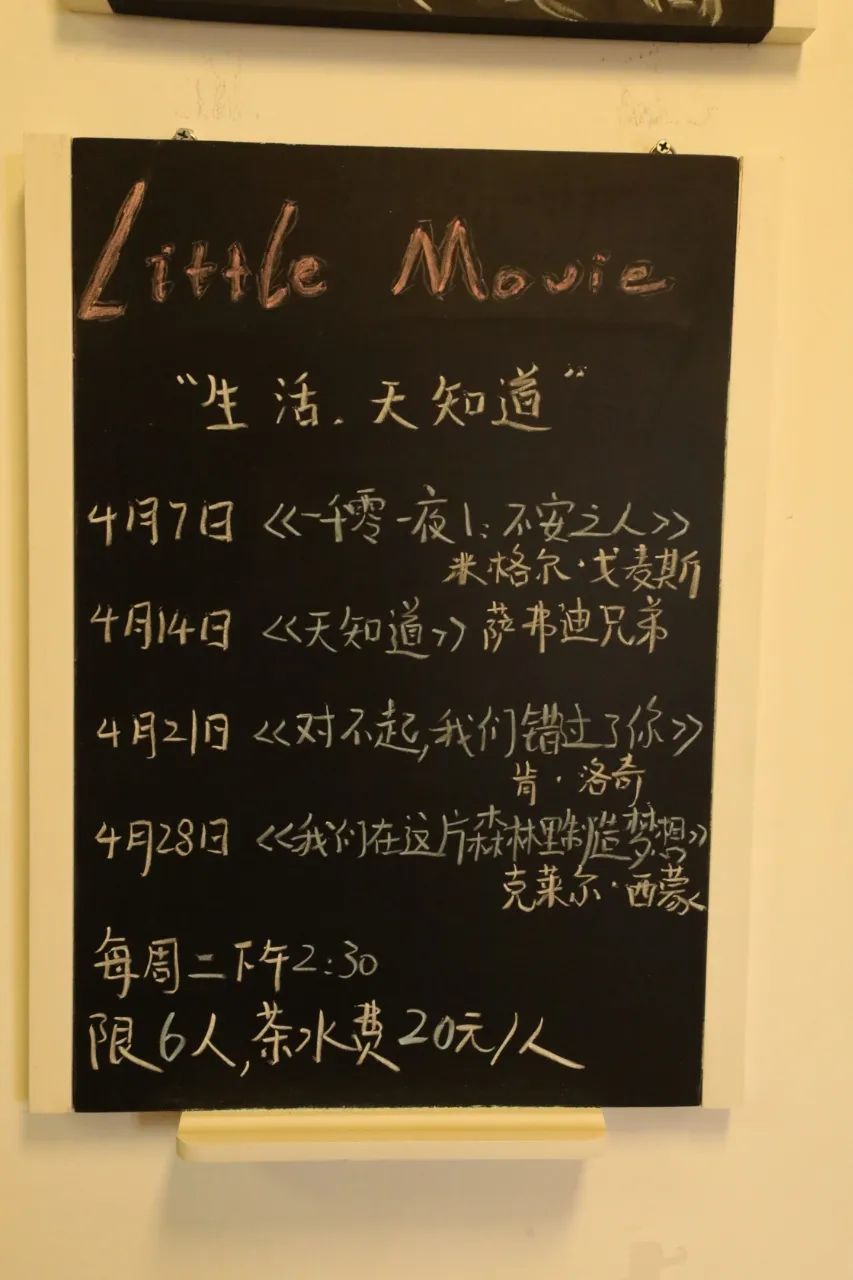 Little Movie
“生活.天知道”
4月7日 《一千零一夜1:不安之人》
米格尔·戈麦斯
4月14日 《天知道》萨弗迪兄弟
4月21日 《对不起,我们错过了你》
肯·洛奇
4月28日 《我们在这片森林里制造梦想》
克莱尔·西蒙
每周二下午2:30
限6人,茶水费20元/人